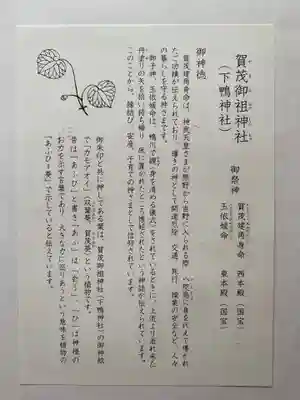 賀茂御祖神社
（下鴨神社）
御祭神
賀茂建角身命　西本殿（国宝）
玉依媛命　東本殿（国宝）
御神徳
賀茂建角身命は、神武天皇さまが熊野から吉野に入られる際
たご功績が伝えられており、導きの神として開運厄除、交通、旅行、操業の安全など、人々
の暮らしを守る神さまです。
御子神、玉依媛命は、鴨川で禊（身を清める儀式）をされているときに、上流より流れ来た
丹塗りの矢を拾い持ち帰り、床に置かれたところ
このことから、縁結び、安産、子育ての神さまとして信仰されています。
御朱印と共に押してある葉は、賀茂御祖神社（下鴨神社）の御神紋
で「カモアオイ」（双葉葵、賀茂葵）という植物です。
昔は「あふひ」と書き「あふ」は「会う」、「ひ」は神様の
お力を示す言葉であり、大きな力に出会うという意味を植物の
「あふひ＝葵」で示していると伝えています。